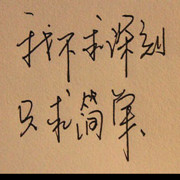 我不求深刻
只求简单、